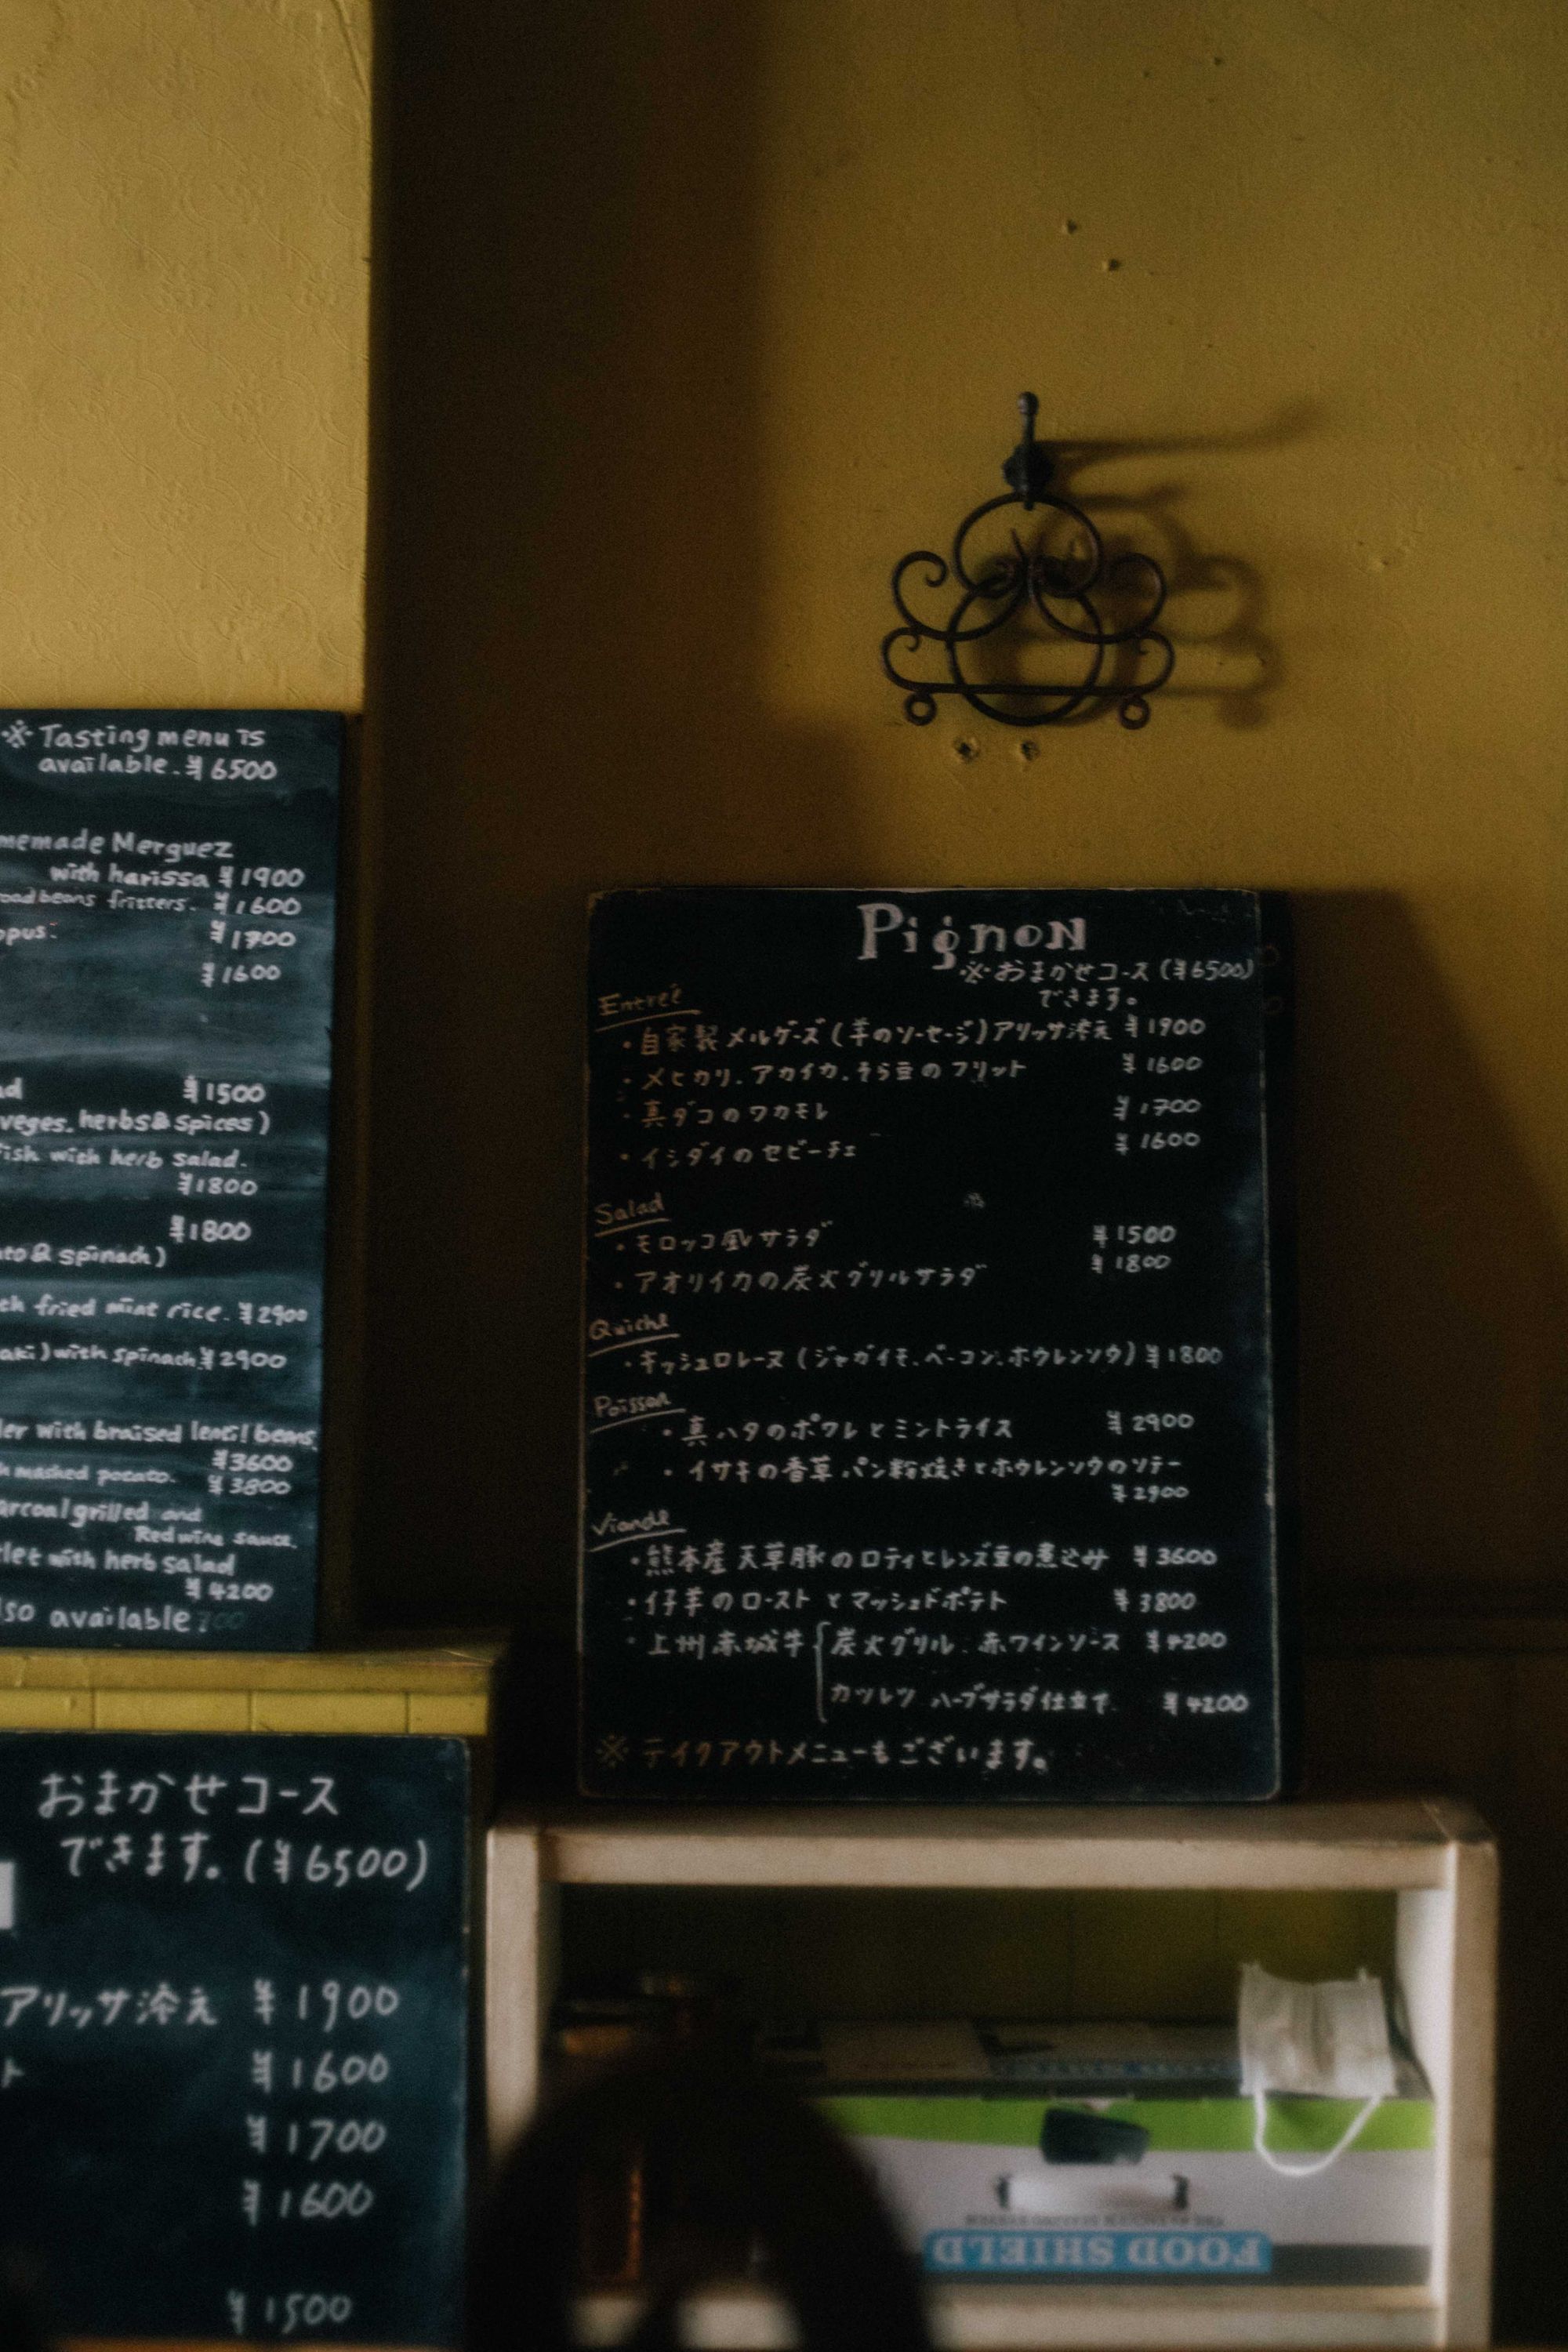 ※ Tasting menu is
available. ¥6500
memade Merguez
with harissa ¥1900
oad beans fritters. ¥1600
opus. ¥1700
¥1600
ad ¥1500
veges. herbs & spices)
fish with herb salad.
¥1800
¥1800
to & spinach)
th fried mint rice. ¥2900
aki) with spinach ¥2900
der with braised lentil beans
¥3600
h mashed potato. ¥3800
arcoal grilled and
Red wine sauce.
let with herb salad
¥4200
lso available.
Pignon
※おまかせコース (¥6500)
できます。
Entreé
・自家製メルゲーズ (羊のソーセージ) アリッサ添え ¥1900
・メヒカリ、アカイカ、そら豆のフリット ¥1600
・真ダコのワカモレ ¥1700
・イシダイのセビーチェ ¥1600
Salad
・モロッコ風サラダ ¥1500
・アオリイカの炭火グリルサラダ ¥1800
Quiche
・キッシュロレーヌ (ジャガイモ、ベーコン、ホウレンソウ) ¥1800
Poisson
・真ハタのポワレとミントライス ¥2900
・イサキの香草パン粉焼きとホウレンソウのソテー
¥2900
Viande
・熊本産天草豚のロティとレンズ豆の煮込み ¥3600
・仔羊のローストとマッシュドポテト ¥3800
・上州赤城牛 炭火グリル 赤ワインソース ¥4200
カツレツ ハーブサラダ仕立て ¥4200
※テイクアウトメニューもございます。
おまかせコース
できます。(¥6500)
アリッサ添え ¥1900
ト ¥1600
¥1700
¥1600
¥1500
FOOD SHIELD